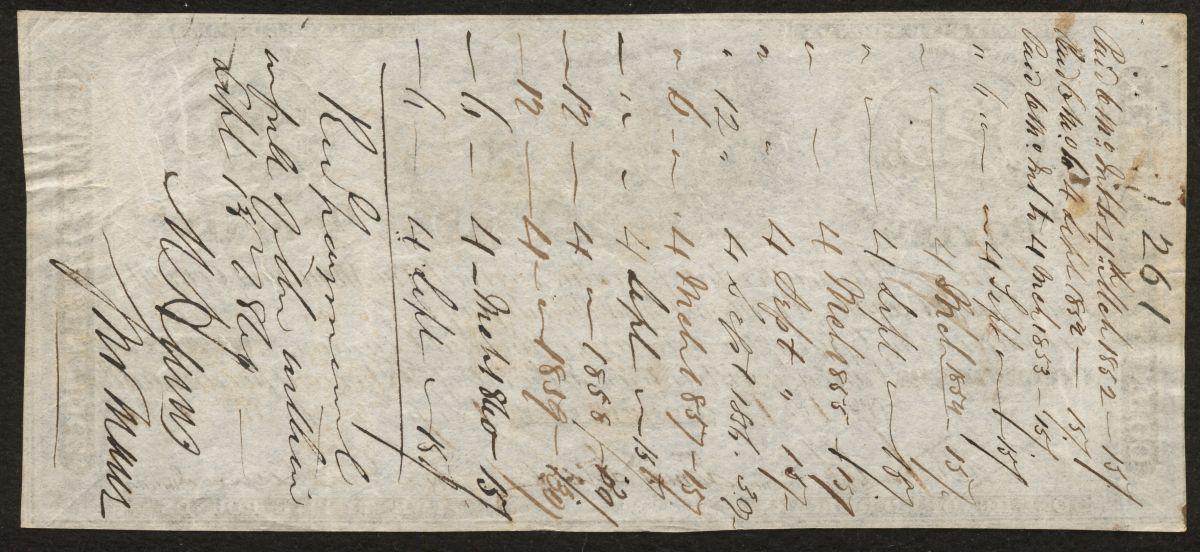 261
Paid 6 Mo. Int to 4th Mch 1852 — 15/
Paid 6 Mo. to 4 Sept 1852 — 15/
Paid 6 Mo. Int to 4 Mch 1853 — 15/
" 6 " — " 4 Sept " 15/
" — 4 Mch 1854 — 15/
" — 4 Sept " 15/
" — 4 Mch 1855 — 15/
" " 4 Sept " 15/
" 12 " 4 Sept 1856. 30/
" 6 " 4 Mch 1857 — 15/
— " " 4 Sept " 15/
— 12 — 4 " 1858 30/
— 12 — 4 " 1859 — 30/
— 6 — 4 — Mch 1860 — 15/
— 6 — 4 Sept " 15/
Repayment
in full of the within
Sept 1860